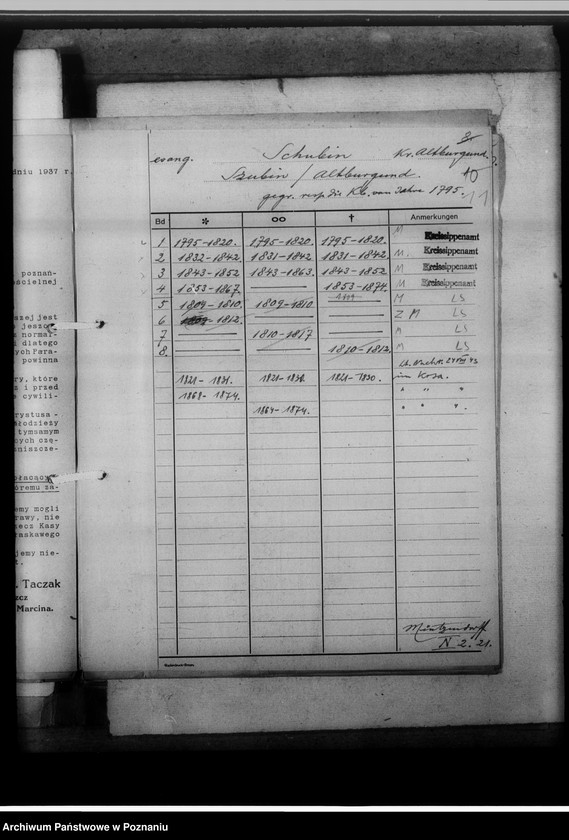 dniu 1937 r.
poznań-
ościelnej
szej jest
jeszcze
normal-
i dlatego
ych Para-
powinna
ry, które
s i przed
e cywili-
rystusa -
młodzieży
tymsamym
ych czę-
aniszcze-
płacący
óremu za-
emy mogli
prawy, nie
necz Kasy
łaskawego
jemy nie-
t.
. Taczak
szcz
Marcina.
evang. Schubin Kr. Altburgund.
Szubin / Altburgund. 10
gegr. resp. die Kb. von Jahre 1795. 11
Bd * oo † Anmerkungen
1 1795-1820. 1795-1820. 1795-1820. M Kreissippenamt
2 1832-1842. 1831-1842 1831-1842 M. Kreissippenamt
3 1843-1852 1843-1863. 1843-1852 M Kreissippenamt
4 1853-1867. — 1853-1874. M Kreissippenamt
5 1809-1810. 1809-1810. — M LS
6 1812. — — Z M LS
7 — 1810-1817 — M LS
8. — — 1810-1812. M LS
1821-1831. 1821-1830. 1821-1830. im Kosa.
1868-1874. " " ".
1864-1874. " " ".
IV 2. 21.
Archiwum Państwowe w Poznaniu